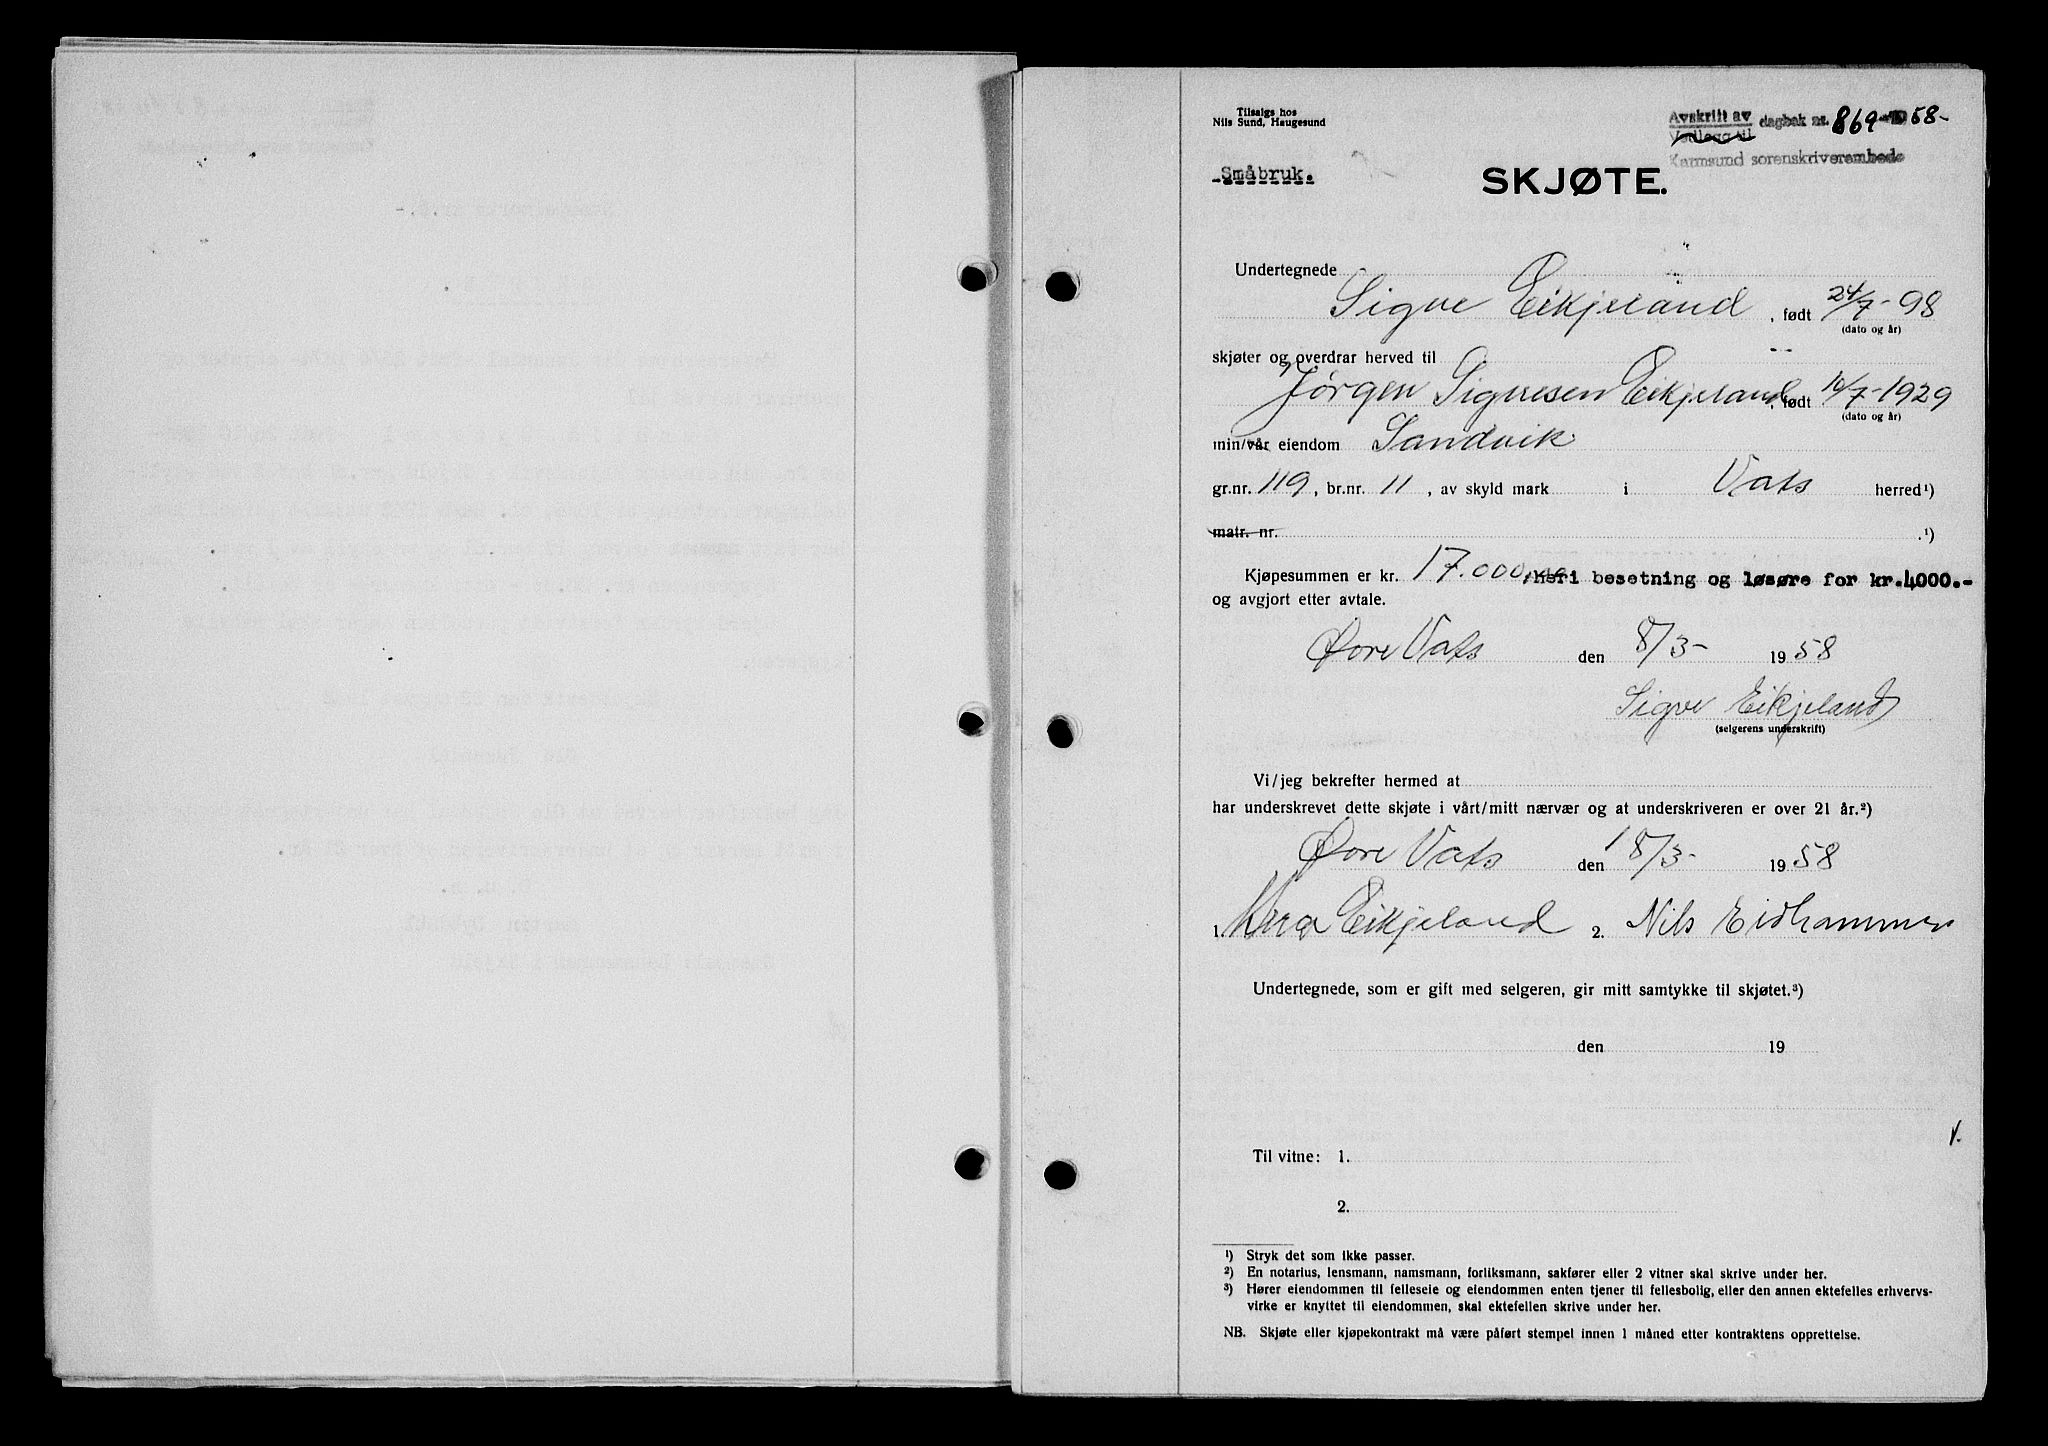 Tilsalgs hos
Nils Sund, Haugesund
Avskrift av
Vedlegg til
dagbok nr. 869 - 1958-
Karmsund sorenskriverembede
Småbruk.
SKJØTE.
Undertegnede
Sigve Eikjeland, født 24/7-98
(dato og år)
skjøter og overdrar herved til
Jørgen Sigvesen Eikjeland, født 10/7-1929
(dato og år)
min/vår eiendom Sandvik
gr.nr. 119, br.nr. 11, av skyld mark i Vats herred¹)
matr. nr. .¹)
Kjøpesummen er kr. 17.000, heri besetning og løsøre for kr.4000.-
og avgjort etter avtale.
Øvre Vats den 8/3- 1958
Sigve Eikjeland
(selgerens underskrift)
Vi/jeg bekrefter hermed at
har underskrevet dette skjøte i vårt/mitt nærvær og at underskriveren er over 21 år.²)
Øvre Vats den 18/3- 1958
1. Eikjeland 2. Nils Eidhammer
Undertegnede, som er gift med selgeren, gir mitt samtykke til skjøtet.³)
den 19
Til vitne: 1.
2.
¹) Stryk det som ikke passer.
²) En notarius, lensmann, namsmann, forliksmann, sakfører eller 2 vitner skal skrive under her.
³) Hører eiendommen til felleseie og eiendommen enten tjener til fellesbolig, eller den annen ektefelles erhvervs-
virke er knyttet til eiendommen, skal ektefellen skrive under her.
NB. Skjøte eller kjøpekontrakt må være påført stempel innen 1 måned etter kontraktens opprettelse.